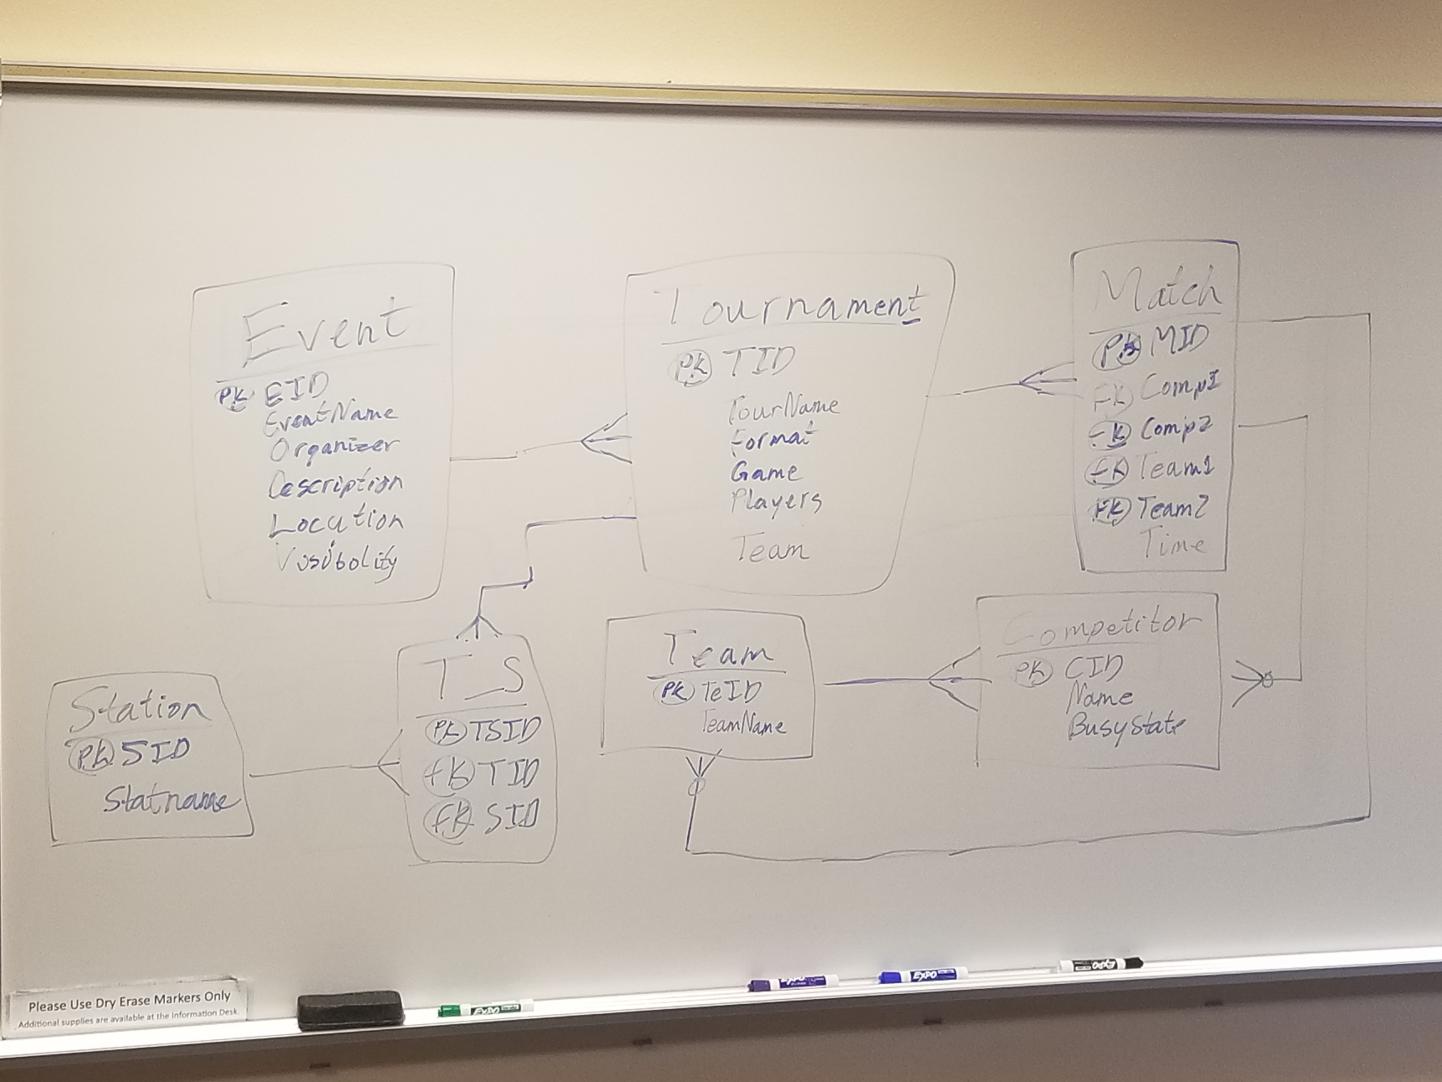 Event
PK EID
EventName
Organizer
Description
Locution
Vusibolity
Tournament
PK TID
TourName
Format
Game
Players
Team
Match
PK MID
FK Comp1
FK Comp2
FK Team1
FK Team2
Time
Station
PK SID
Statname
T_S
PK TSID
FK TID
FK SID
Team
PK TeID
TeamName
Competitor
PK CID
Name
BusyState
Please Use Dry Erase Markers Only
Additional supplies are available at the Information Desk.
EXPO
EXPO
EXPO
EXPO